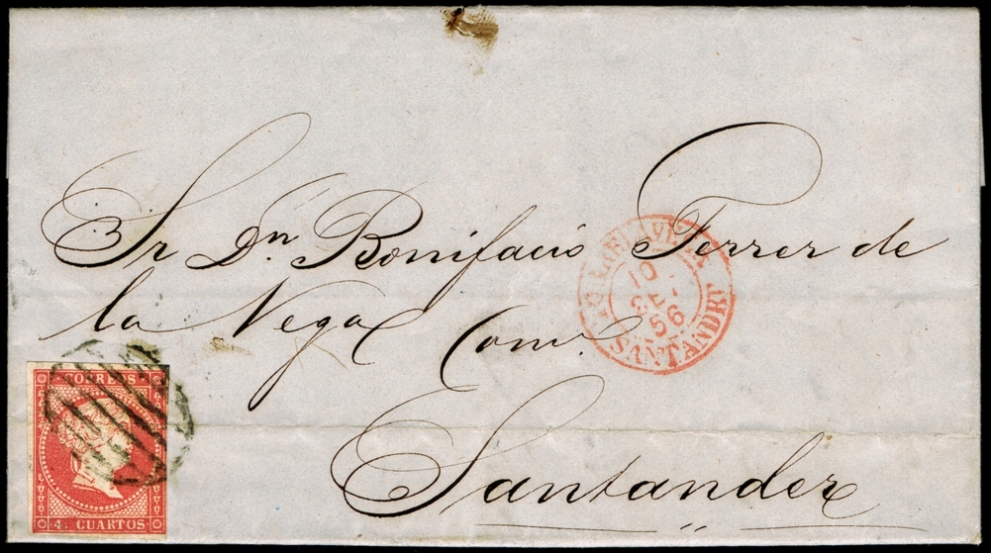 Sr Dn. Bonifacio Ferrer de
la Vega
Santander
TORRELAVEGA
10
SET.
56
SANTANDER
CORREOS
4. CUARTOS